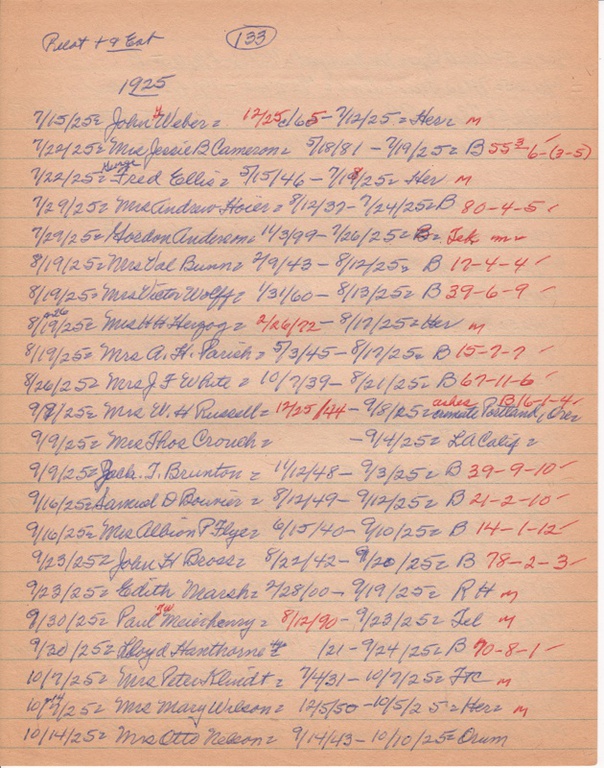 Pilot + 9 Ent (133)
1925
7/15/25 = John Y Weber = 12/25/65 - 7/12/25 = Her m
7/22/25 = Mrs Jessie B Cameron = 5/18/81 - 7/19/25 = B 55 3/-6-(3-5)
7/22/25 = George Fred Ellis = 5/15/46 - 7/18/25 = Her m
7/29/25 = Mrs Andrew Hoier = 8/12/37 - 7/24/25 = B 80-4-5 ✓
7/29/25 = Gordon Anderson = 11/3/99 - 7/26/25 = Tek m
8/19/25 = Mrs Val Bunn = 2/9/43 - 8/12/25 = B 17-4-4 ✓
8/19/25 = Mrs Victor Wolff = 1/31/60 - 8/13/25 = B 39-6-9 ✓
8/19/25 = Mrs H H Herzog = 2/26/72 - 8/17/25 = Her m
8/19/25 = Mrs A. H. Parish = 5/3/45 - 8/17/25 = B 15-7-7 ✓
8/26/25 = Mrs J F White = 10/7/39 - 8/21/25 = B 67-11-6 ✓
9/8/25 = Mrs W. H Russell = 12/25/44 - 9/8/25 = ashes B16-1-4 ✓ Portland, Ore
9/9/25 = Mrs Thos Crouch = - 9/4/25 = LA Calif =
9/9/25 = Jach. T. Brunton = 11/12/48 - 9/3/25 = B 39-9-10 ✓
9/16/25 = Samuel D Bouvier = 8/12/49 - 9/12/25 = B 21-2-10 ✓
9/16/25 = Mrs Albion P Flye = 6/15/40 - 9/10/25 = B 14-1-12 ✓
9/23/25 = John H Bross = 8/22/42 - 9/20/25 = B 78-2-3 ✓
9/23/25 = Edith Marsh = 2/28/00 - 9/19/25 = R H m
9/30/25 = Paul Meierhenry = 8/12/90 - 9/23/25 = Tel m
9/30/25 = Lloyd Hawthorne = /21 - 9/24/25 = B 70-8-1 ✓
10/7/25 = Mrs Peter Klindt = 7/4/31 - 10/7/25 = Ftc m
10/7/25 = Mrs Mary Wilson = 12/5/50 - 10/5/25 = Her m
10/14/25 = Mrs Otto Nelson = 9/14/43 - 10/10/25 = Orum